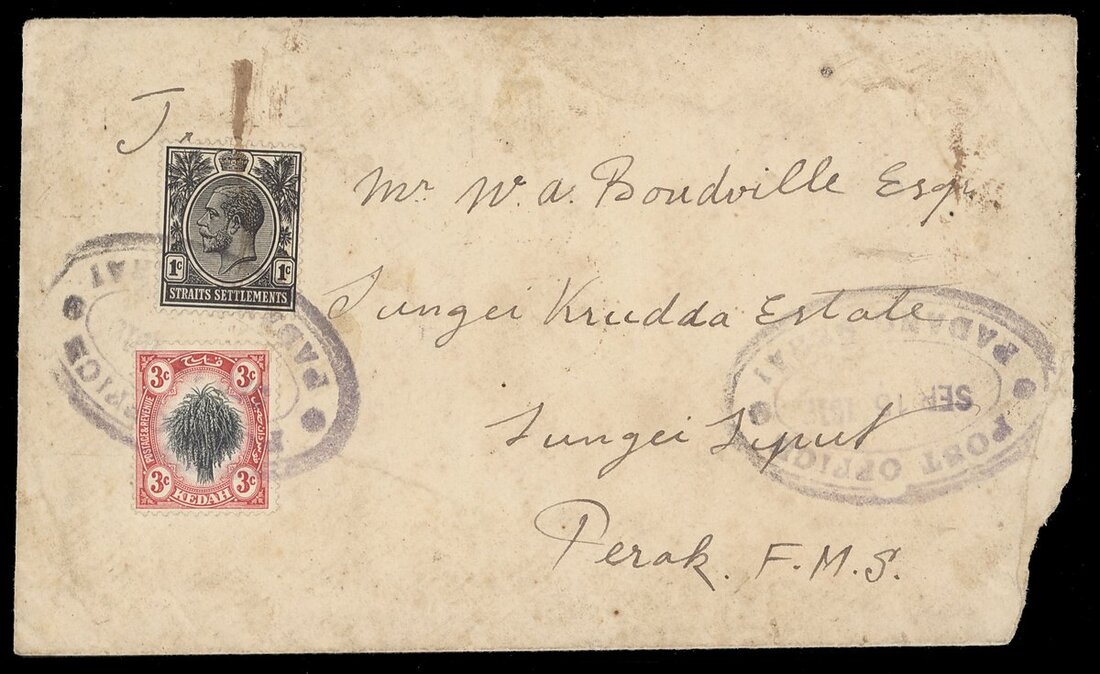 To
Mr W. A. Boudville Esqr
Sungei Krudda Estate
Sungei Siput
Perak. F.M.S.
1c 1c
STRAITS SETTLEMENTS
3c 3c
POSTAGE & REVENUE
3c 3c
KEDAH
POST OFFICE
PADANG
POST OFFICE
PADANG
SEP 15